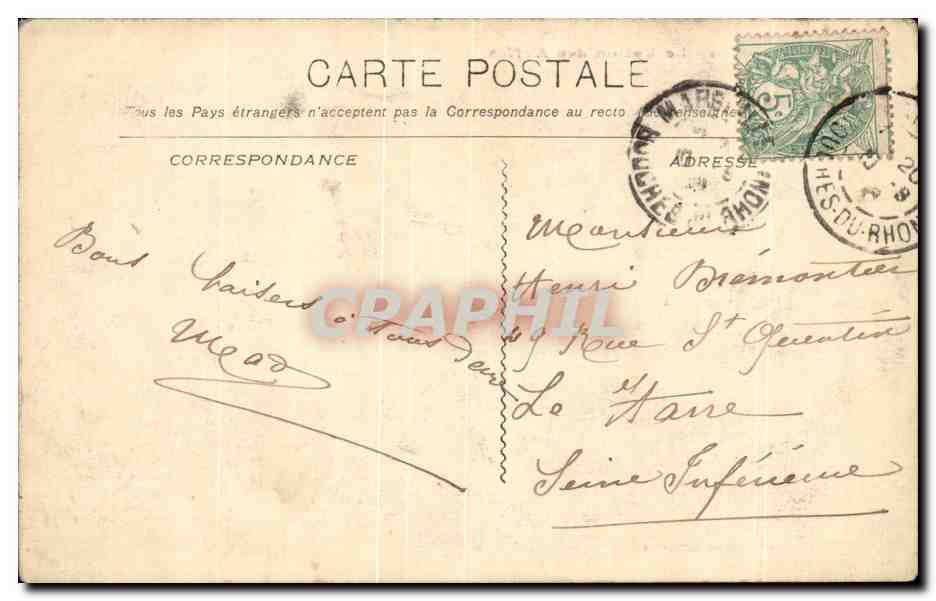 CARTE POSTALE
Tous les Pays étrangers n'acceptent pas la Correspondance au recto
CORRESPONDANCE
ADRESSE
MARSEILLE
BOUCHES DU RHONE
5c
20
HES-DU-RHON
Bons baisers à tous deux
Monsieur
Henri Brémontier
49 Rue St Quentin
Le Havre
Seine Inférieure
CPAPHIL